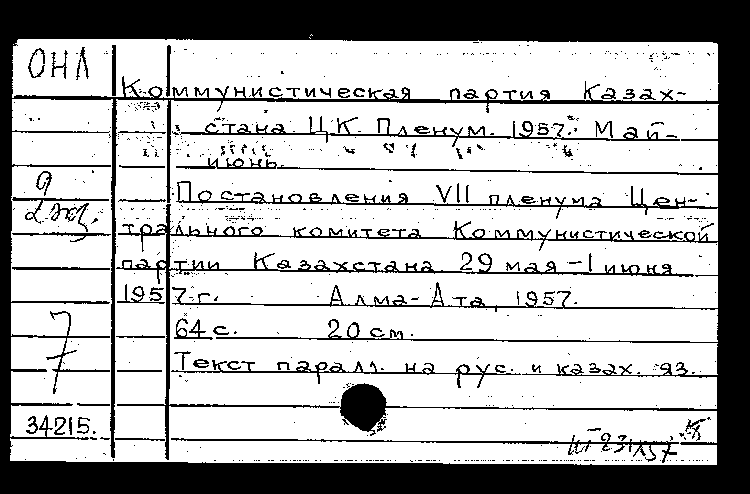 ОНЛ
Коммунистическая партия Казах-
стана ЦК Пленум. 1957. Май-
июнь.
Постановления VII пленума Цен-
9
2 экз.
трального комитета Коммунистической
партии Казахстана 29 мая-1 июня
1957г. Алма-Ата, 1957.
64 с. 20 см.
7
Текст паралл. на рус. и казах. яз.
34215.